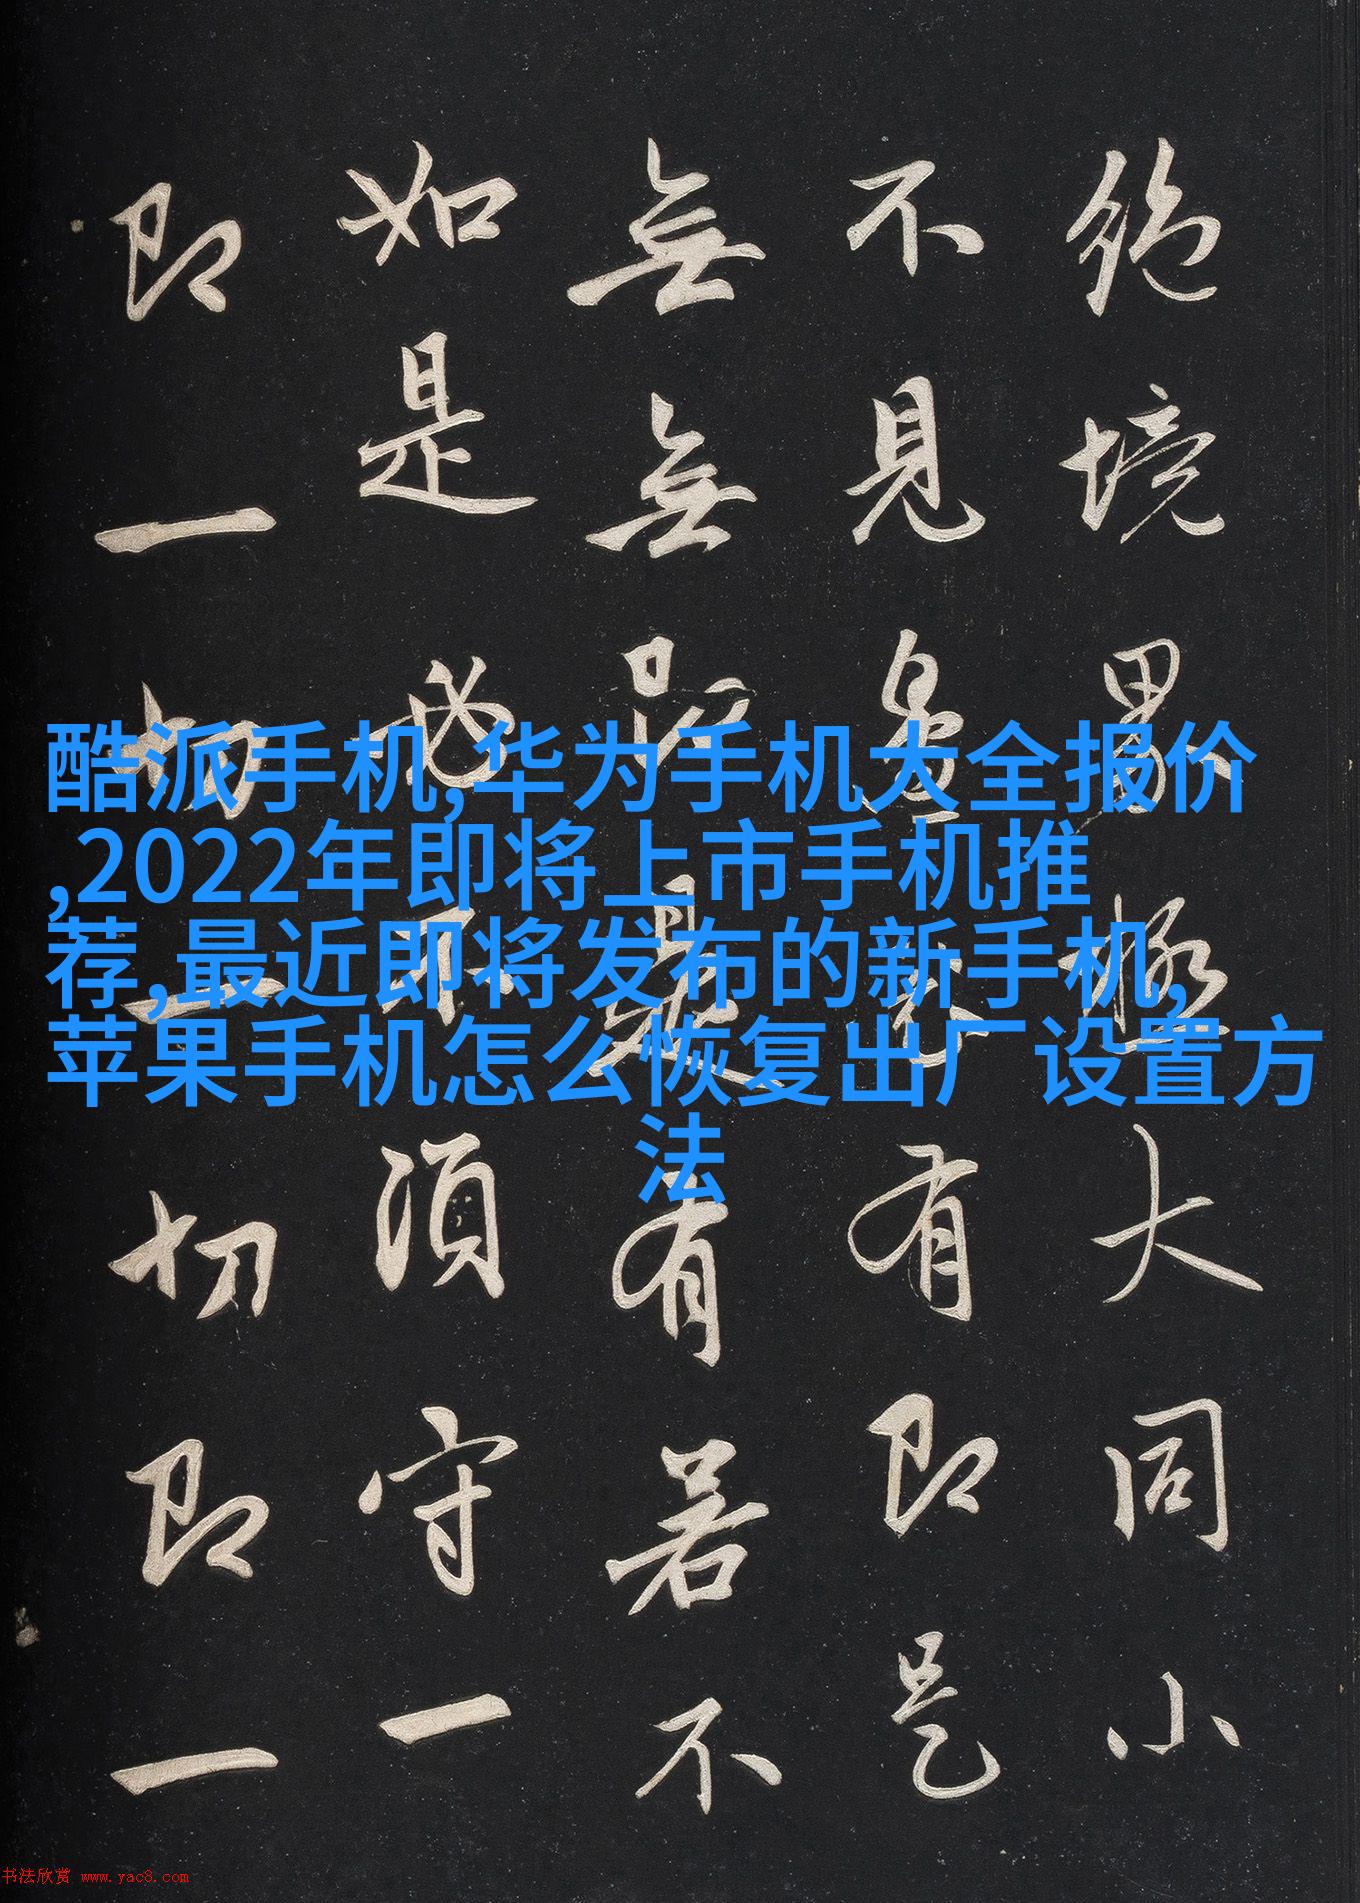 絶境界極大同小
不見邊表有即是
無無即是有若不
如是必不須守一
即一切一切即一
酷派手机,华为手机大全报价
,2022年即将上市手机推
荐,最近即将发布的新手机,
苹果手机怎么恢复出厂设置方
法
书法欣赏 www.yac8.com